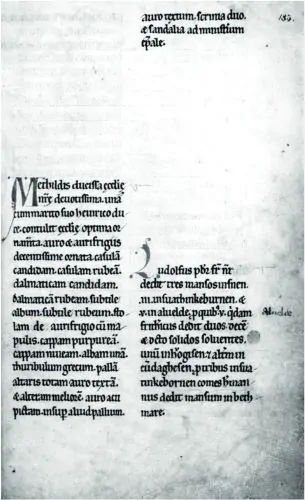 auro textum. scrinia duo.
& sandalia ad ministium
ep̄ale.
183.
Methildis ducissa ecclīe
nr̄e devotissima. una
cum marito suo heinrico du
ce. contulit ecclīe optima or
nam̄ta. auro & aurifrigiis
decentissime ornata. casulā
candidam. casulam rubeā.
dalmaticam candidam.
dalmaticā rubeam. subtile
album. subtile rubeum. sto
lam de aurifrigio cū ma
pulis. cappam purpureā.
cappam niueam. albam unā.
thuribulum grecum. pallā
altaris totam auro textā.
& alteram meliorē. auro acu
pictam. insup aliud pallium.
Ludolfus pb̄r fr̄ nr̄
dedit tres mansos
.III. &
.v. in aluelde, p quib; .v. q̄dam
dedit duos
& octo solidos soluentes.
unū in & altm̄ in
p̄ribus insua
tinkebornen comes h̄man
nus dedit mansum in beth
mare.
Aluelde